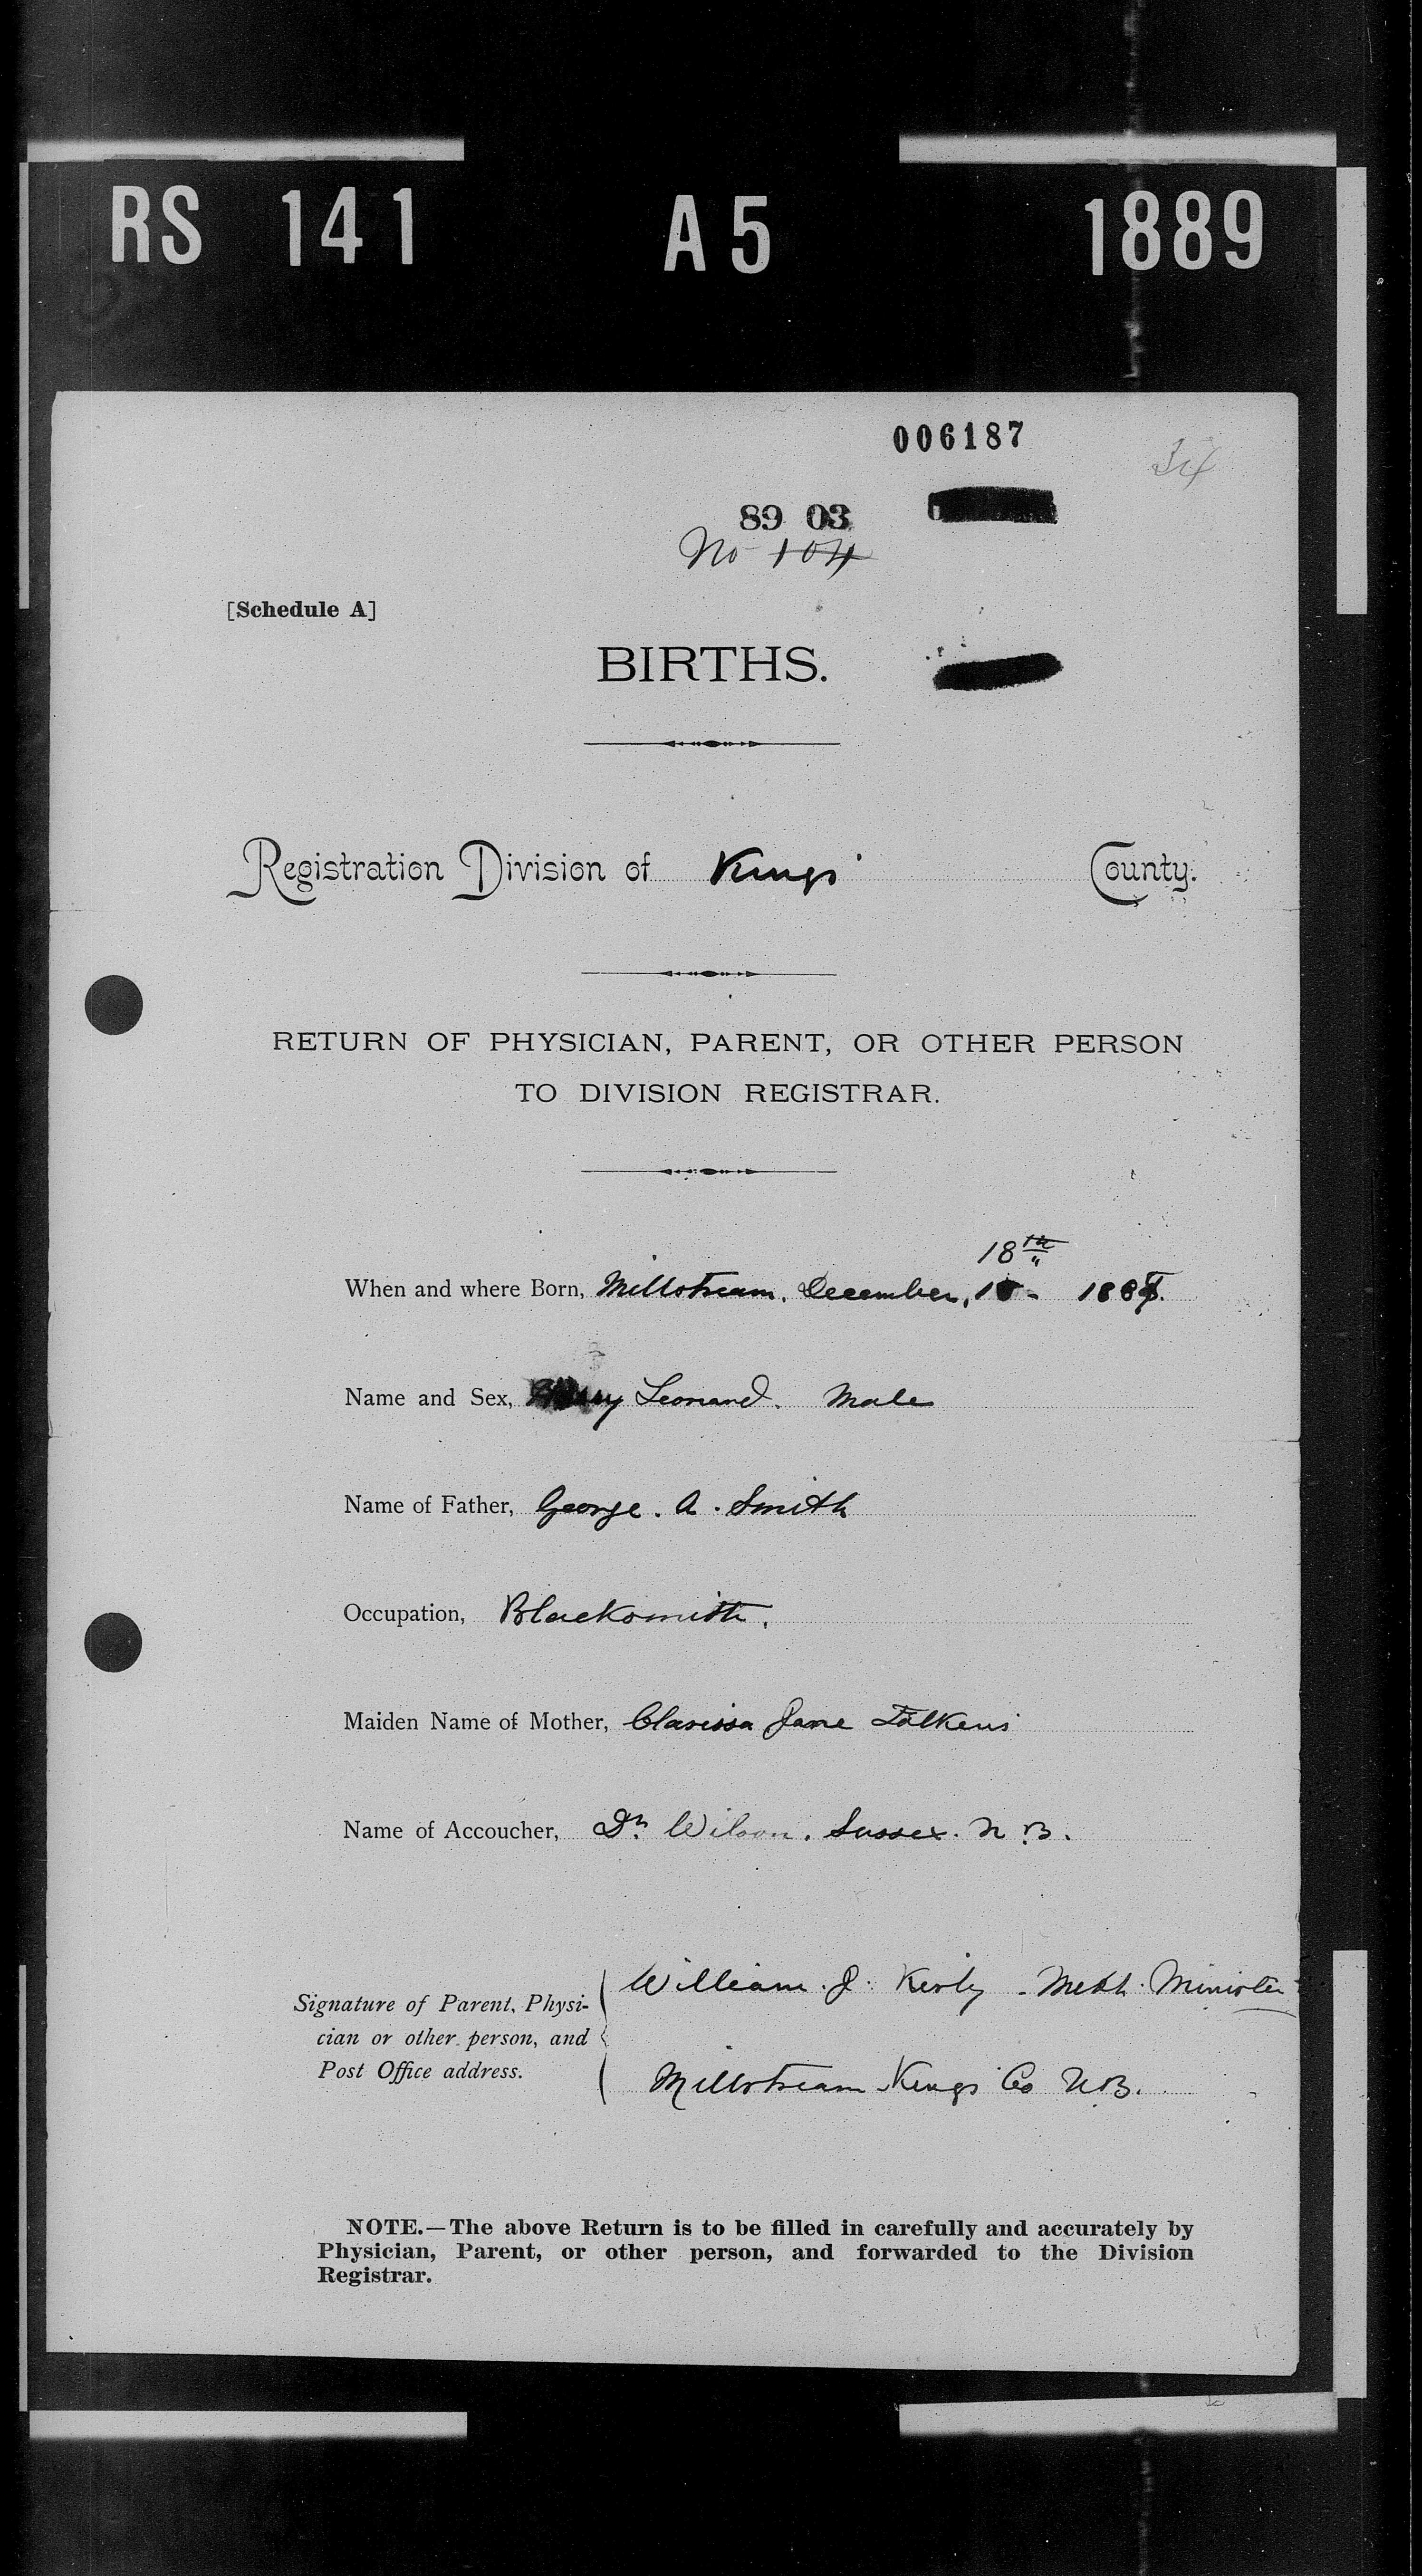 RS 141 A5 1889
006187
34
89 03
No 104
[Schedule A]
BIRTHS.
Registration Division of Kings County.
RETURN OF PHYSICIAN, PARENT, OR OTHER PERSON
TO DIVISION REGISTRAR.
18th
When and where Born, Millstream. December, 18 - 188
Name and Sex, Leonard. Male
Name of Father, George. A. Smith
Occupation, Blacksmith.
Maiden Name of Mother, Clarissa Jane Folkens
Name of Accoucher, Dr. Wilson. Sussex. N.B.
William. J. Kirby - Meth. Minister
Signature of Parent, Physi-
cian or other person, and
Post Office address.
Millstream Kings Co N.B.
NOTE.—The above Return is to be filled in carefully and accurately by
Physician, Parent, or other person, and forwarded to the Division
Registrar.